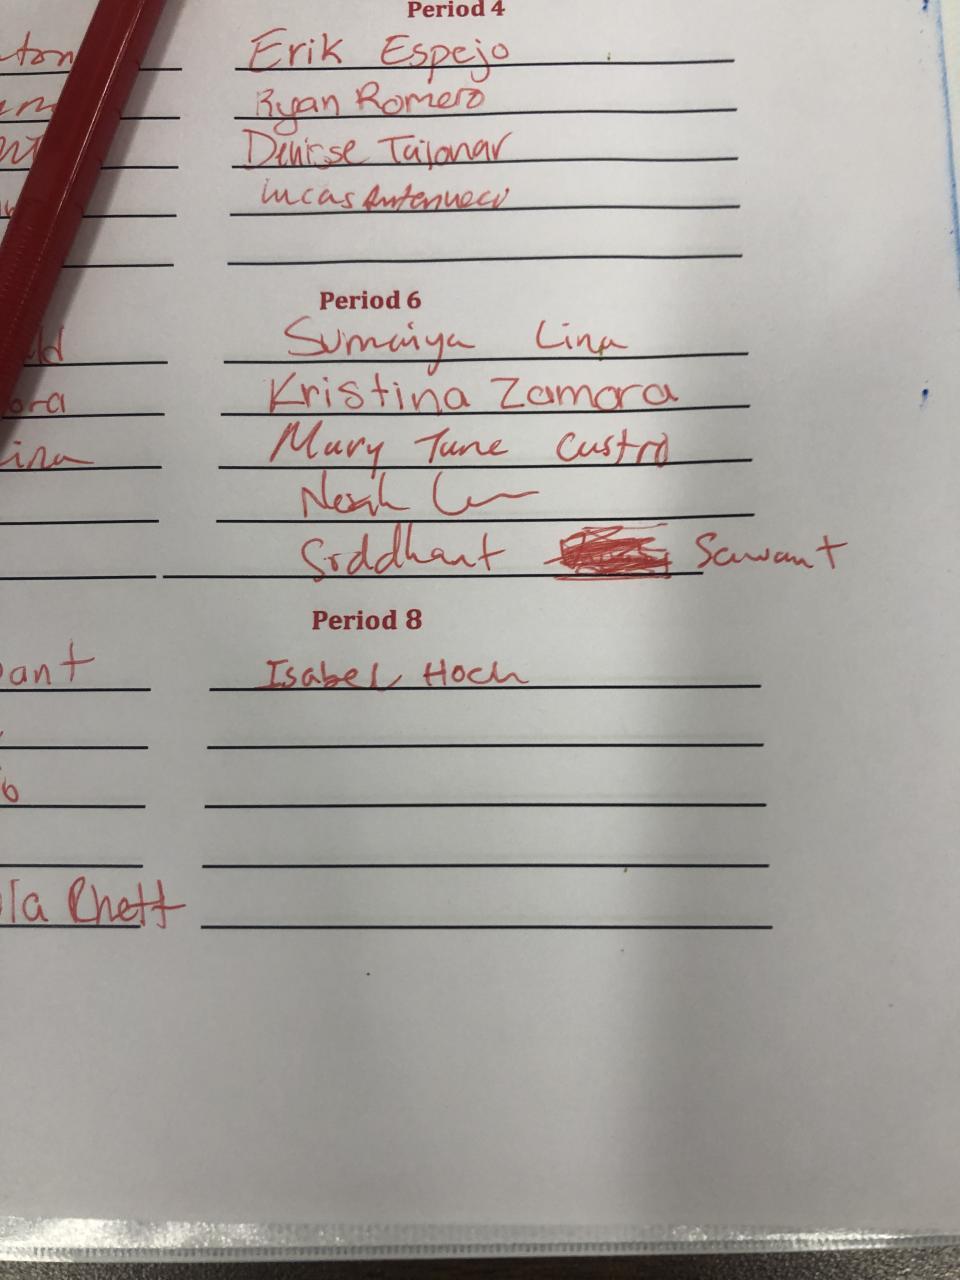 Period 4
Erik Espejo
Ryan Romero
Denisse Tajonar
Lucas
Period 6
Sumaiya Lina
ora Kristina Zamora
ina Mary Jane Castro
Siddhant Sawant
Period 8
ant Isabel Hoch
la Rhett